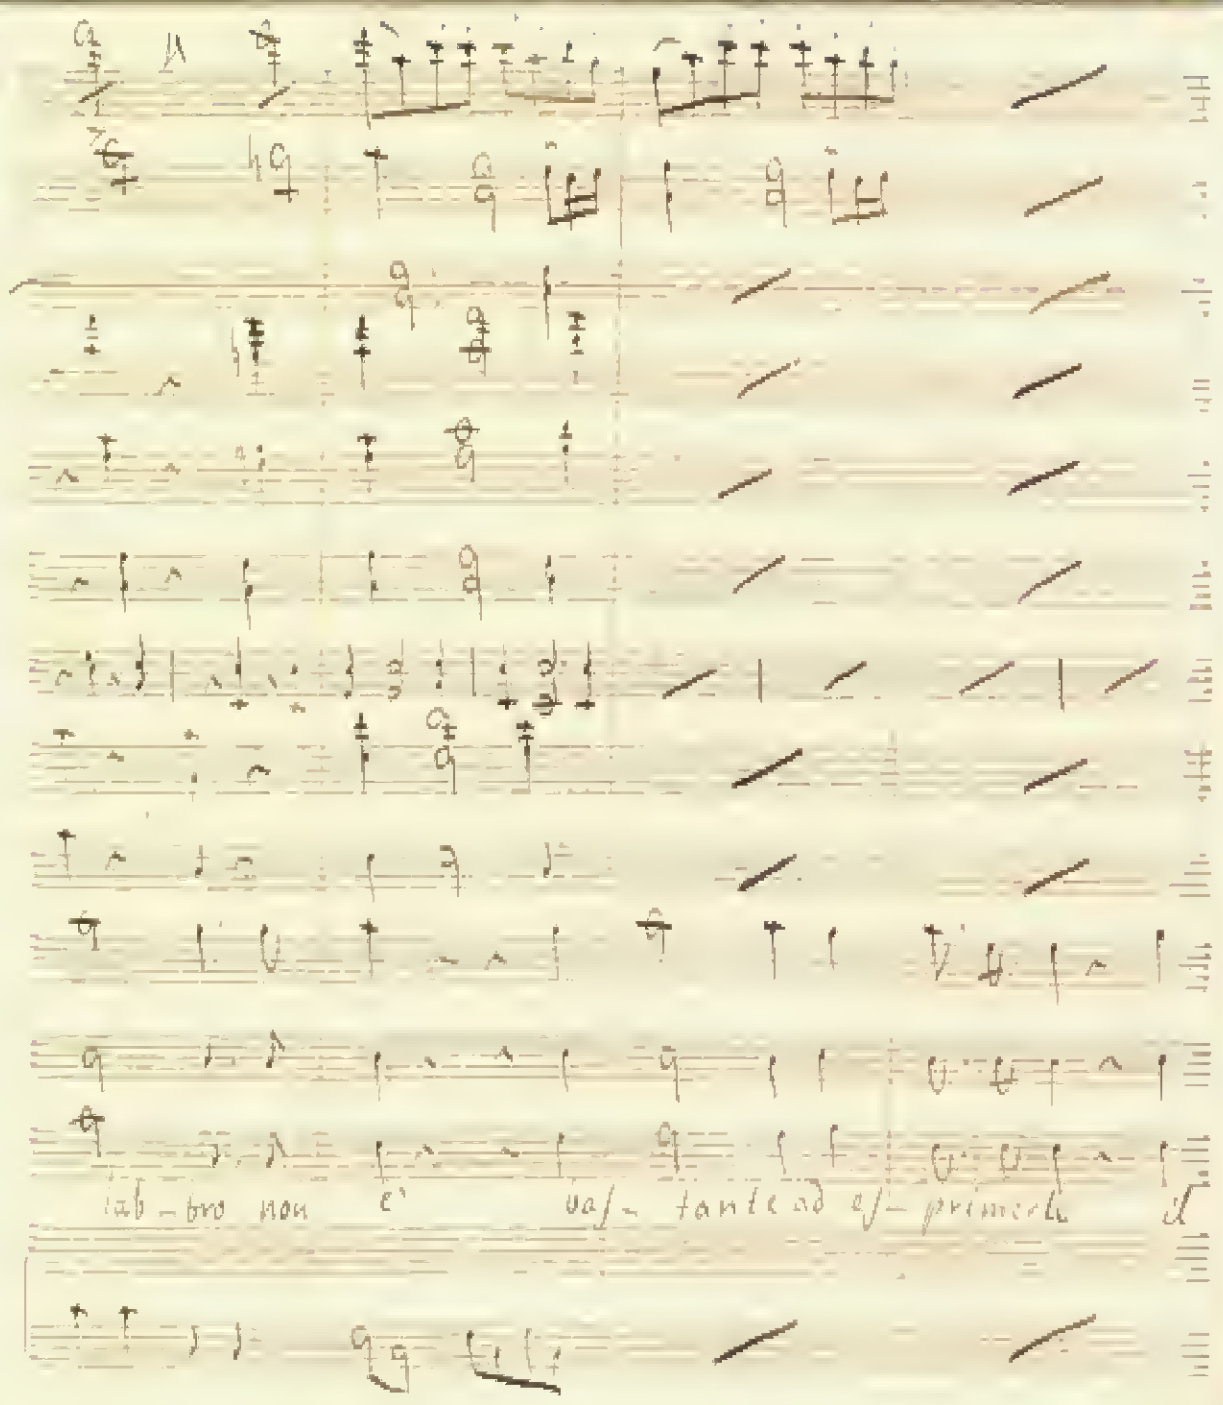 lab-bro non è bas- tante ad es- primerti il